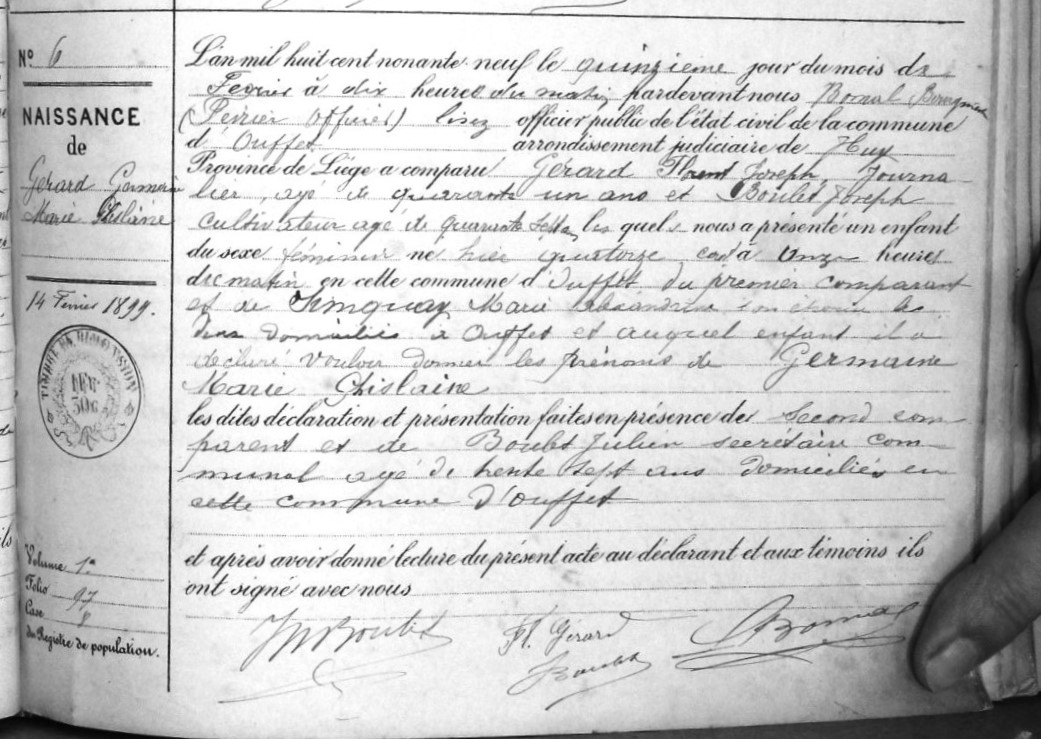 Nº 6
NAISSANCE
de
Gérard Germaine
Marie Ghislaine
14 Février 1899.
TIMBRE DE DIMENSION
50c
Volume 1º
Folio 97
Case 8
du Registre de population.
L'an mil huit cent nonante-neuf le quinzieme jour du mois de
Fevrier à dix heures du matin pardevant nous Bornal Bourgmestre
(Février officier) lisez officier public de l'état civil de la commune
d'Ouffet arrondissement judiciaire de Huy
Province de Liége a comparu Gérard Florent Joseph, Journa
lier, agé de quarante un ans et Boulet Joseph
cultivateur agé de quarante sept les quels nous a présenté un enfant
du sexe féminin né hier quatorze à onze heures
du matin en cette commune d'Ouffet du premier comparant
et de Marie Alexandrine son épouse les
deux domiciliés à Ouffet et auquel enfant il a
déclaré vouloir donner les prénoms de Germaine
Marie Ghislaine
les dites déclaration et présentation faites en présence de second com
parent et de Boulet Julien secrétaire com
munal agé de trente sept ans domiciliés en
cette commune d'Ouffet
et après avoir donné lecture du présent acte au déclarant et aux témoins ils
ont signé avec nous
Boulet Fl. Gérard Bornal
Boulet